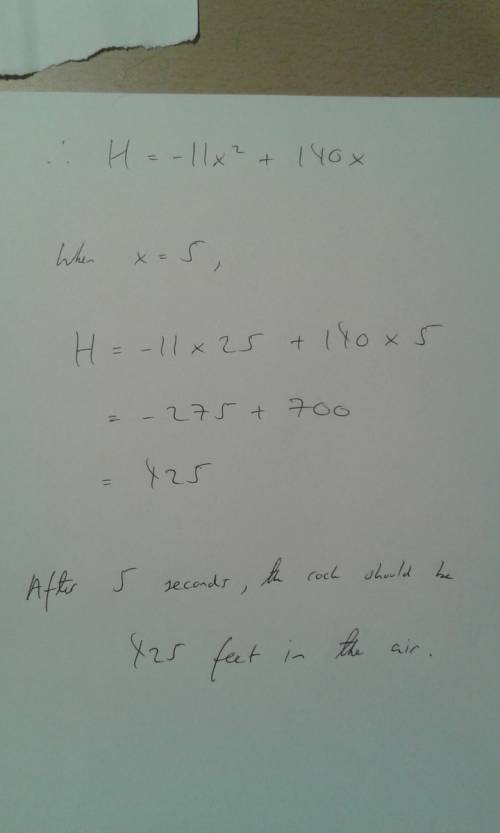 ∴ H = -11x² + 140x
When x = 5,
H = -11 × 25 + 140 × 5
= -275 + 700
= 425
After 5 seconds, the rock should be
425 feet in the air.